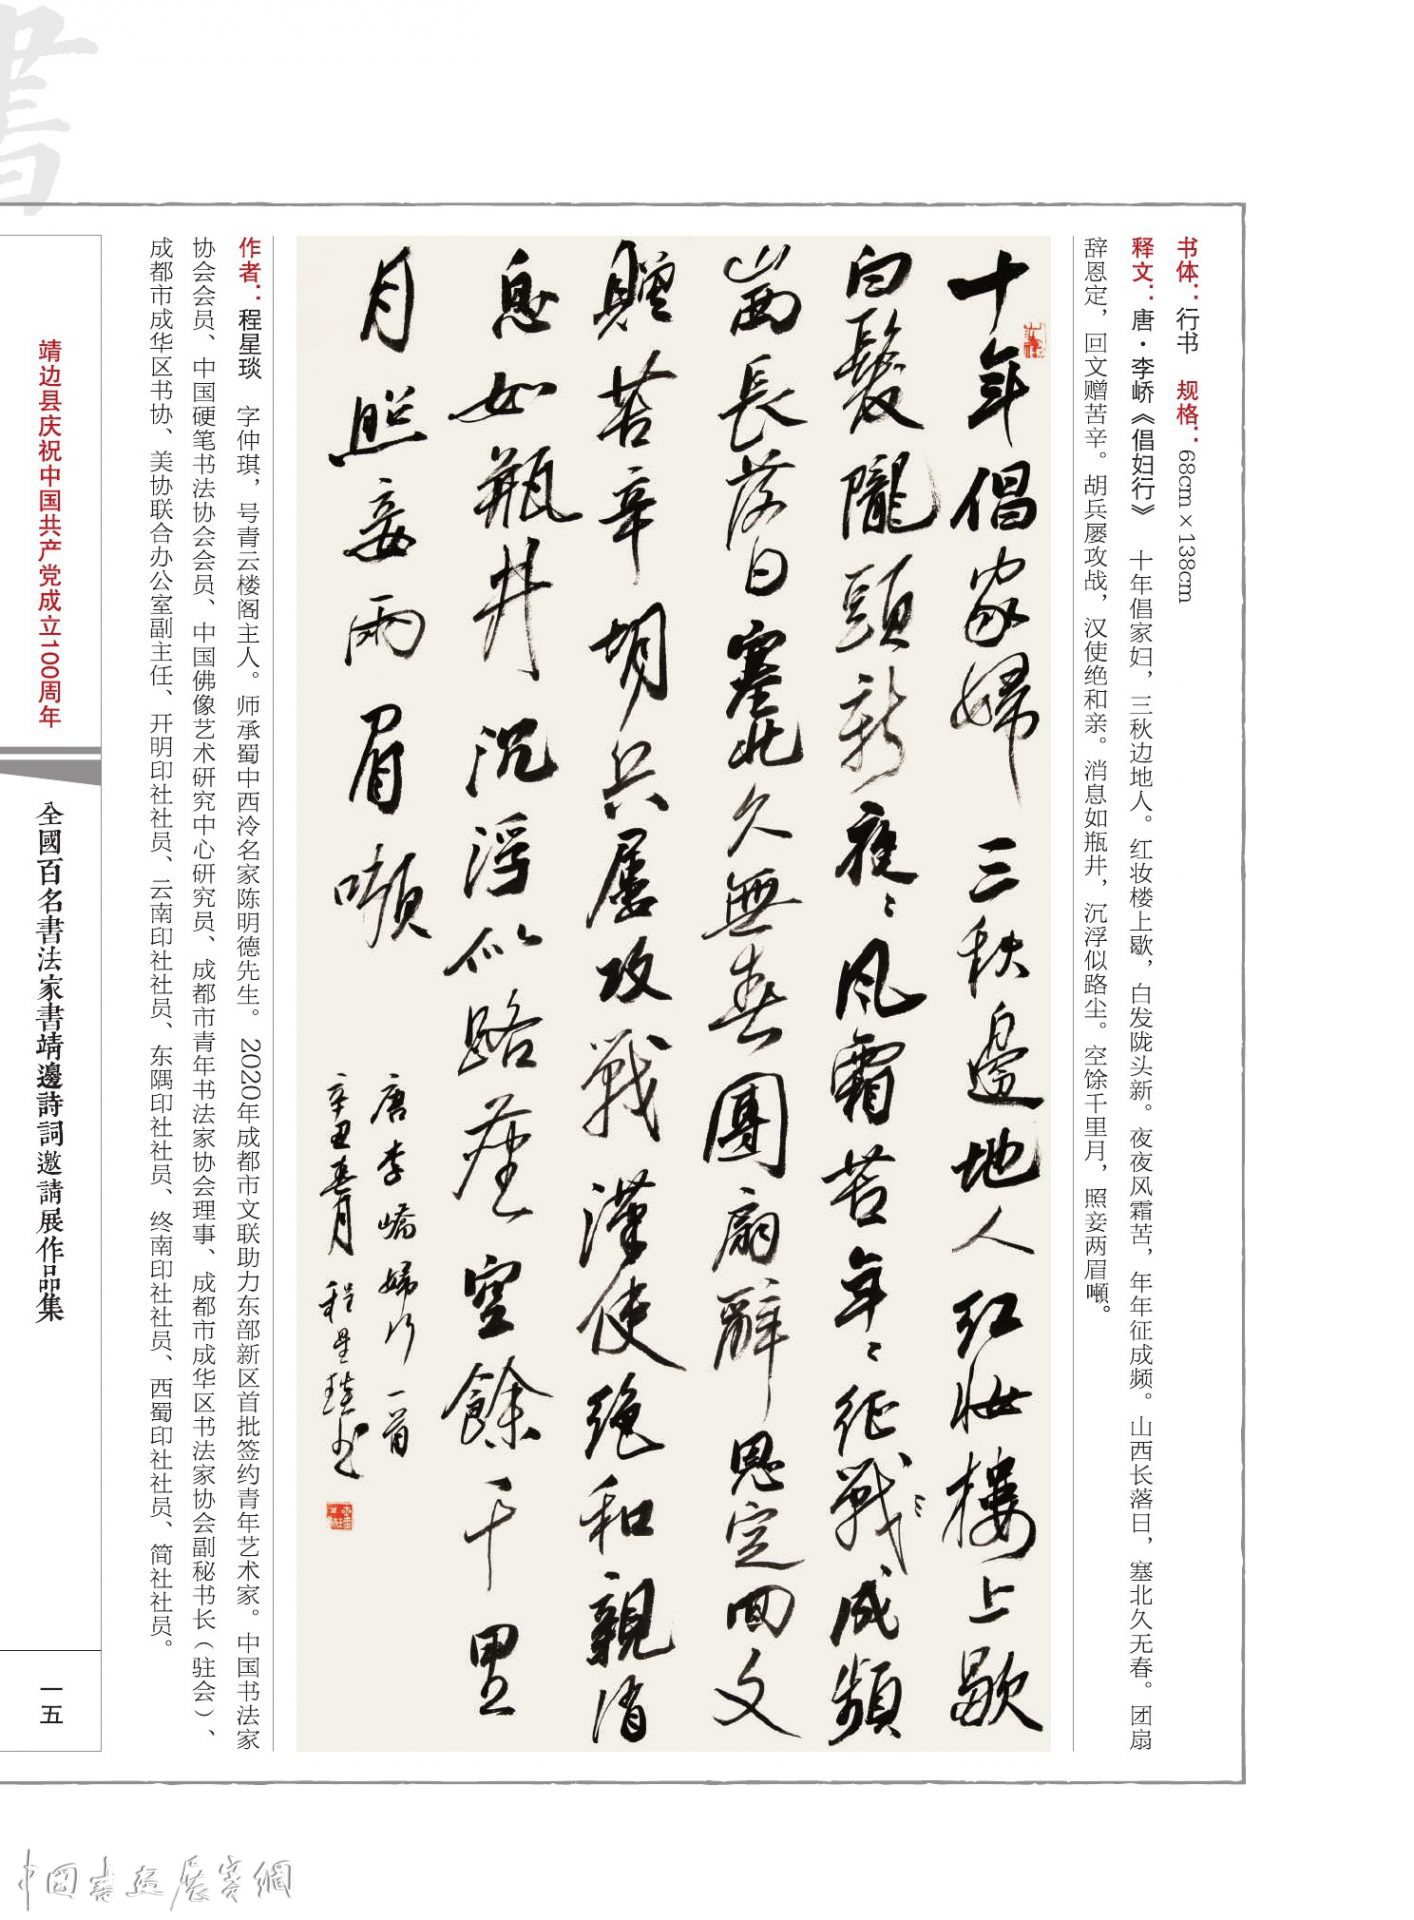 书体：行书 规格：68cm×138cm
释文：唐·李峤《倡妇行》 十年倡家妇，三秋边地人。红妆楼上歇，白发陇头新。夜夜风霜苦，年年征成频。山西长落日，塞北久无春。团扇
辞恩定，回文赠苦辛。胡兵屡攻战，汉使绝和亲。消息如瓶井，沉浮似路尘。空馀千里月，照妾两眉噸。
十年倡家婦三秋邊地人红妝樓上歇
白髮隴頭新夜〻風霜苦年〻征戰成頻
山西長落日塞北久無春團扇辭恩定回文
贈苦辛胡兵屢攻戰漢使絕和親消
息如瓶井沉浮似路塵空餘千里
月照妾兩眉嚬
唐李嶠婦行一首
辛丑春月程星琰书
作者：程星琰 字仲琪，号青云楼阁主人。师承蜀中西泠名家陈明德先生。2020年成都市文联助力东部新区首批签约青年艺术家。中国书法家
协会会员、中国硬笔书法协会会员、中国佛像艺术研究中心研究员、成都市青年书法家协会理事、成都市成华区书法家协会副秘书长（驻会）、
成都市成华区书协、美协联合办公室副主任、开明印社社员、云南印社社员、东隅印社社员、终南印社社员、西蜀印社社员、简社社员。
靖边县庆祝中国共产党成立100周年
全國百名書法家書靖邊詩詞邀請展作品集
一五
書
中國書畫展賽網